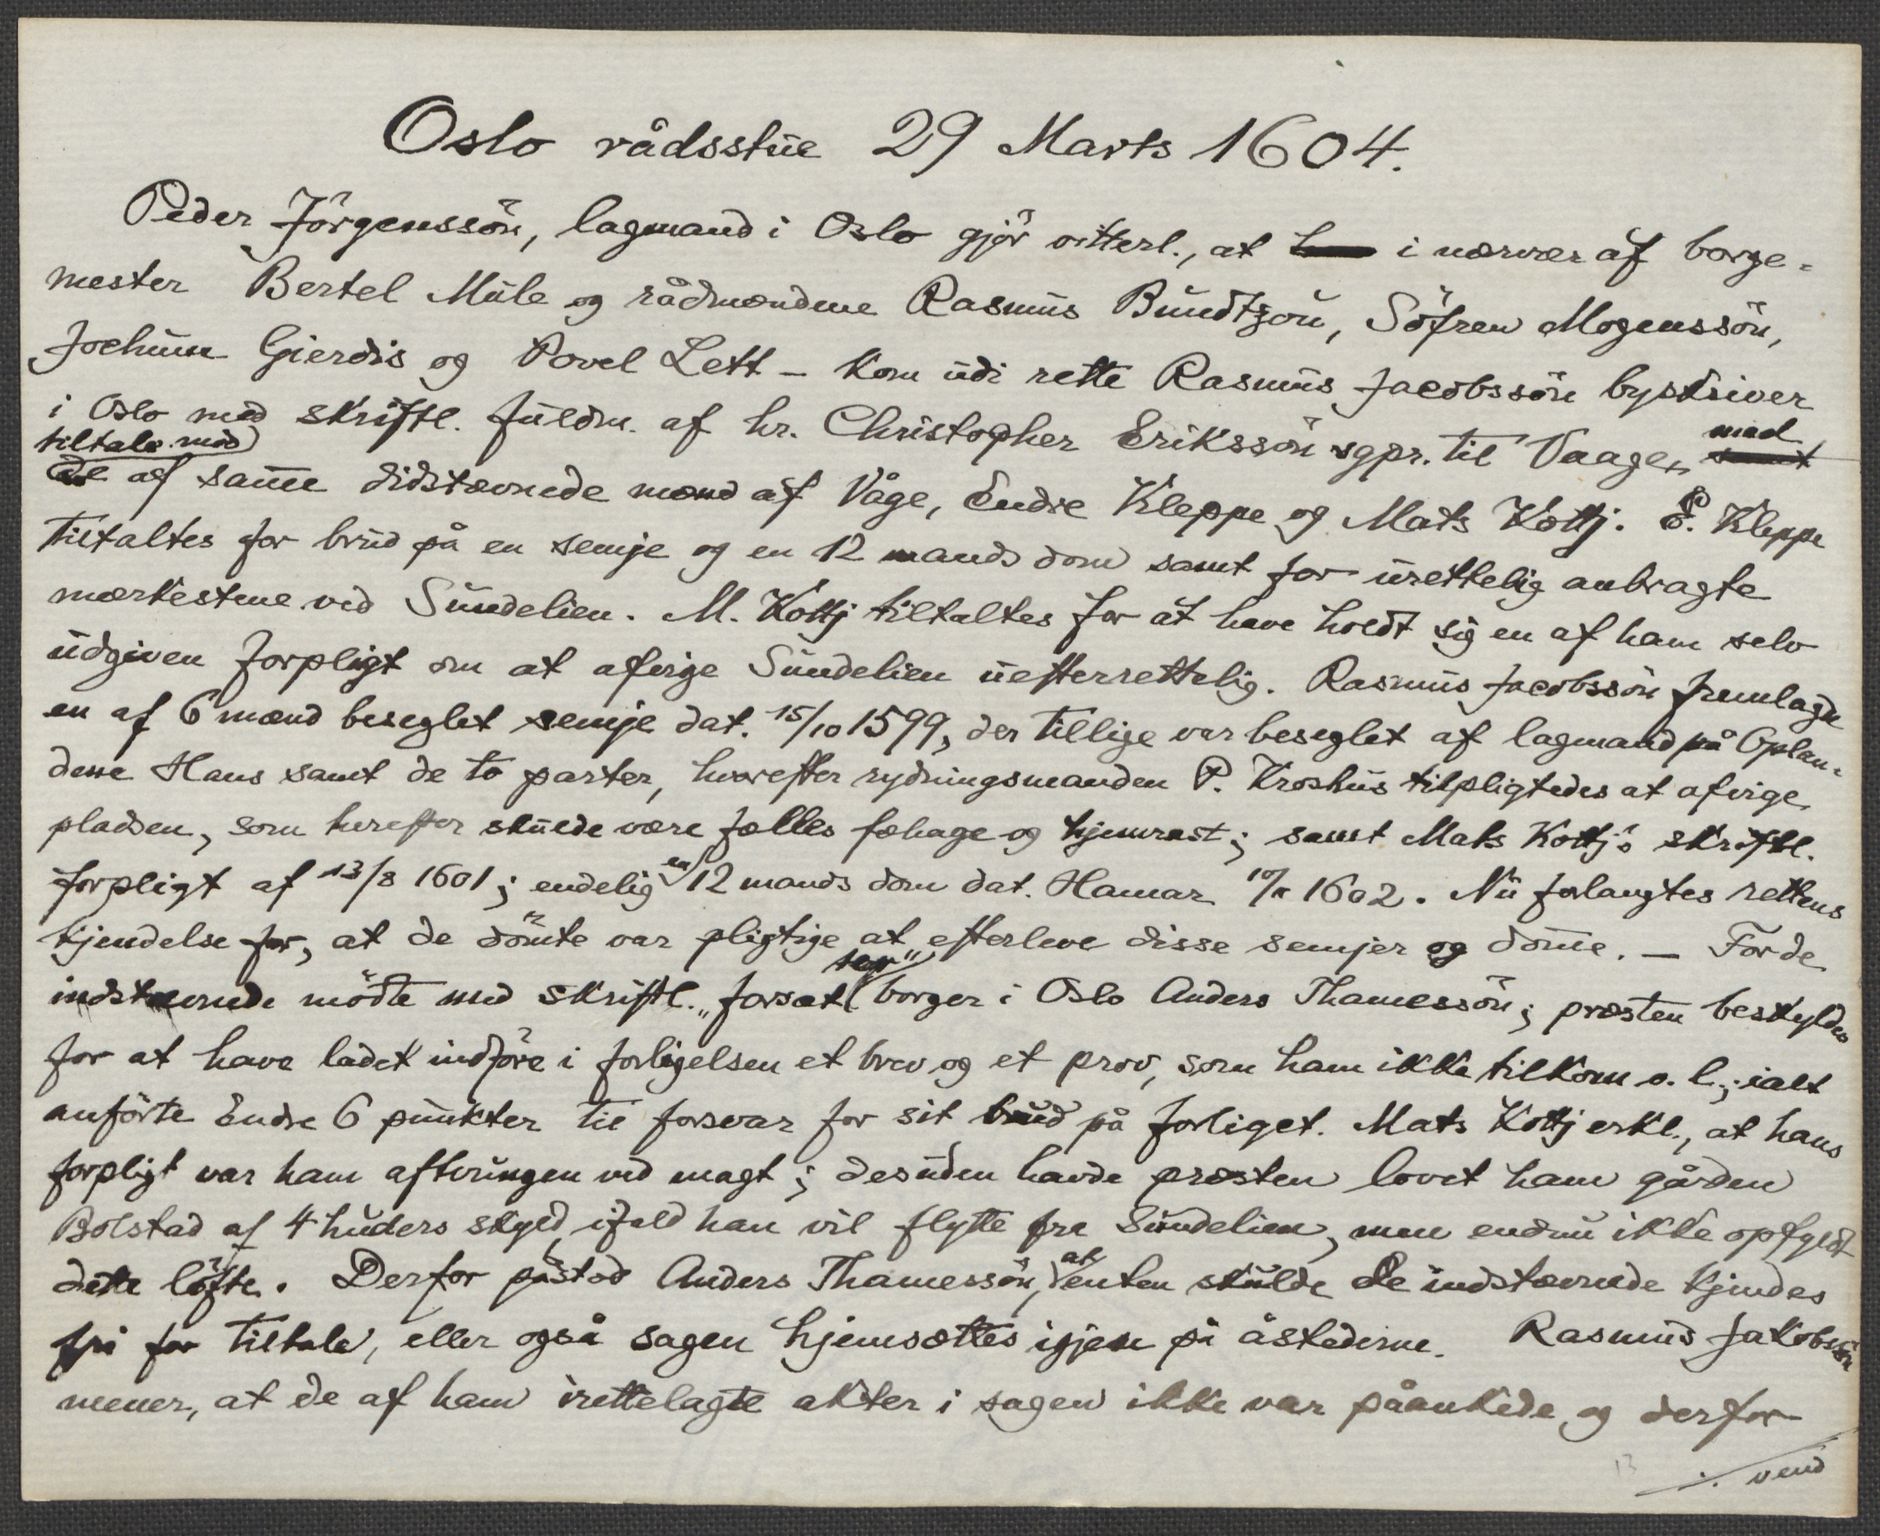 Oslo rådsstue 29 Marts 1604.
Peder Jörgenssön, lagmand i Oslo gjör vitterl., at i nærvær af borge-
mester Bertel Mule og rådmændene Rasmus Bundtzou, Söfren Mogenssön,
Jochum Gierdis og Povel Lett – kom udi rette Rasmus Jacobssön byskriver
i Oslo med skriftl. fuldm. af hr. Christopher Erikssön sgpr. til Vaage, med
tiltale mod
de af samme didstævnede mænd af Våge, Endre Kleppe og Mats Kottj. E. Kleppe
tiltaltes for brud på en semje og en 12 mands dom samt for urettelig anbragte
mærkestene ved Sundelien. M. Kottj tiltaltes for at have holdt sig en af ham selv
udgiven forpligt om at afvige Sundelien uefterrettelig. Rasmus Jacobssön fremlagde
en af 6 mænd beseglet semje dat. 15/10 1599, der tillige var beseglet af lagmand på Oplan-
dene Hans samt de to parter, hvorefter rydningsmanden P. Kroshus tilpligtedes at afvige
pladsen, som herefter skulde være fælles fæhage og hjemrast; samt Mats Kottj's skriftl.
forpligt af 13/8 1601; endelig en 12 mands dom dat. Hamar 1602. Nu forlangtes rettens
kjendelse for, at de dömte var pligtige at efterleve disse semjer og domme. – For de
indstævnede mödte med skriftl. „forsæt borger i Oslo Anders Thamessön; præsten beskyldes
for at have ladet indföre i forligelsen et brev og et prov, som ham ikke tilkom o. l.; ialt
anförte Endre 6 punkter til forsvar for sit brud på forliget. Mats Kottj erkl., at hans
forpligt var ham aftvungen ved magt; desuden havde præsten lovet ham gården
Bolstad af 4 huders skyld, ifald han vil flytte fra Sundelien, men endnu ikke opfyldt
dette löfte. Derfor påstod Anders Thamessön, at enten skulde de indstævnede kjendes
fri for tiltale, eller også sagen hjemsættes igjen på åstederne. Rasmus Jakobssön
mener, at de af ham irettelagte akter i sagen ikke var påankede, og derfor
./. vend